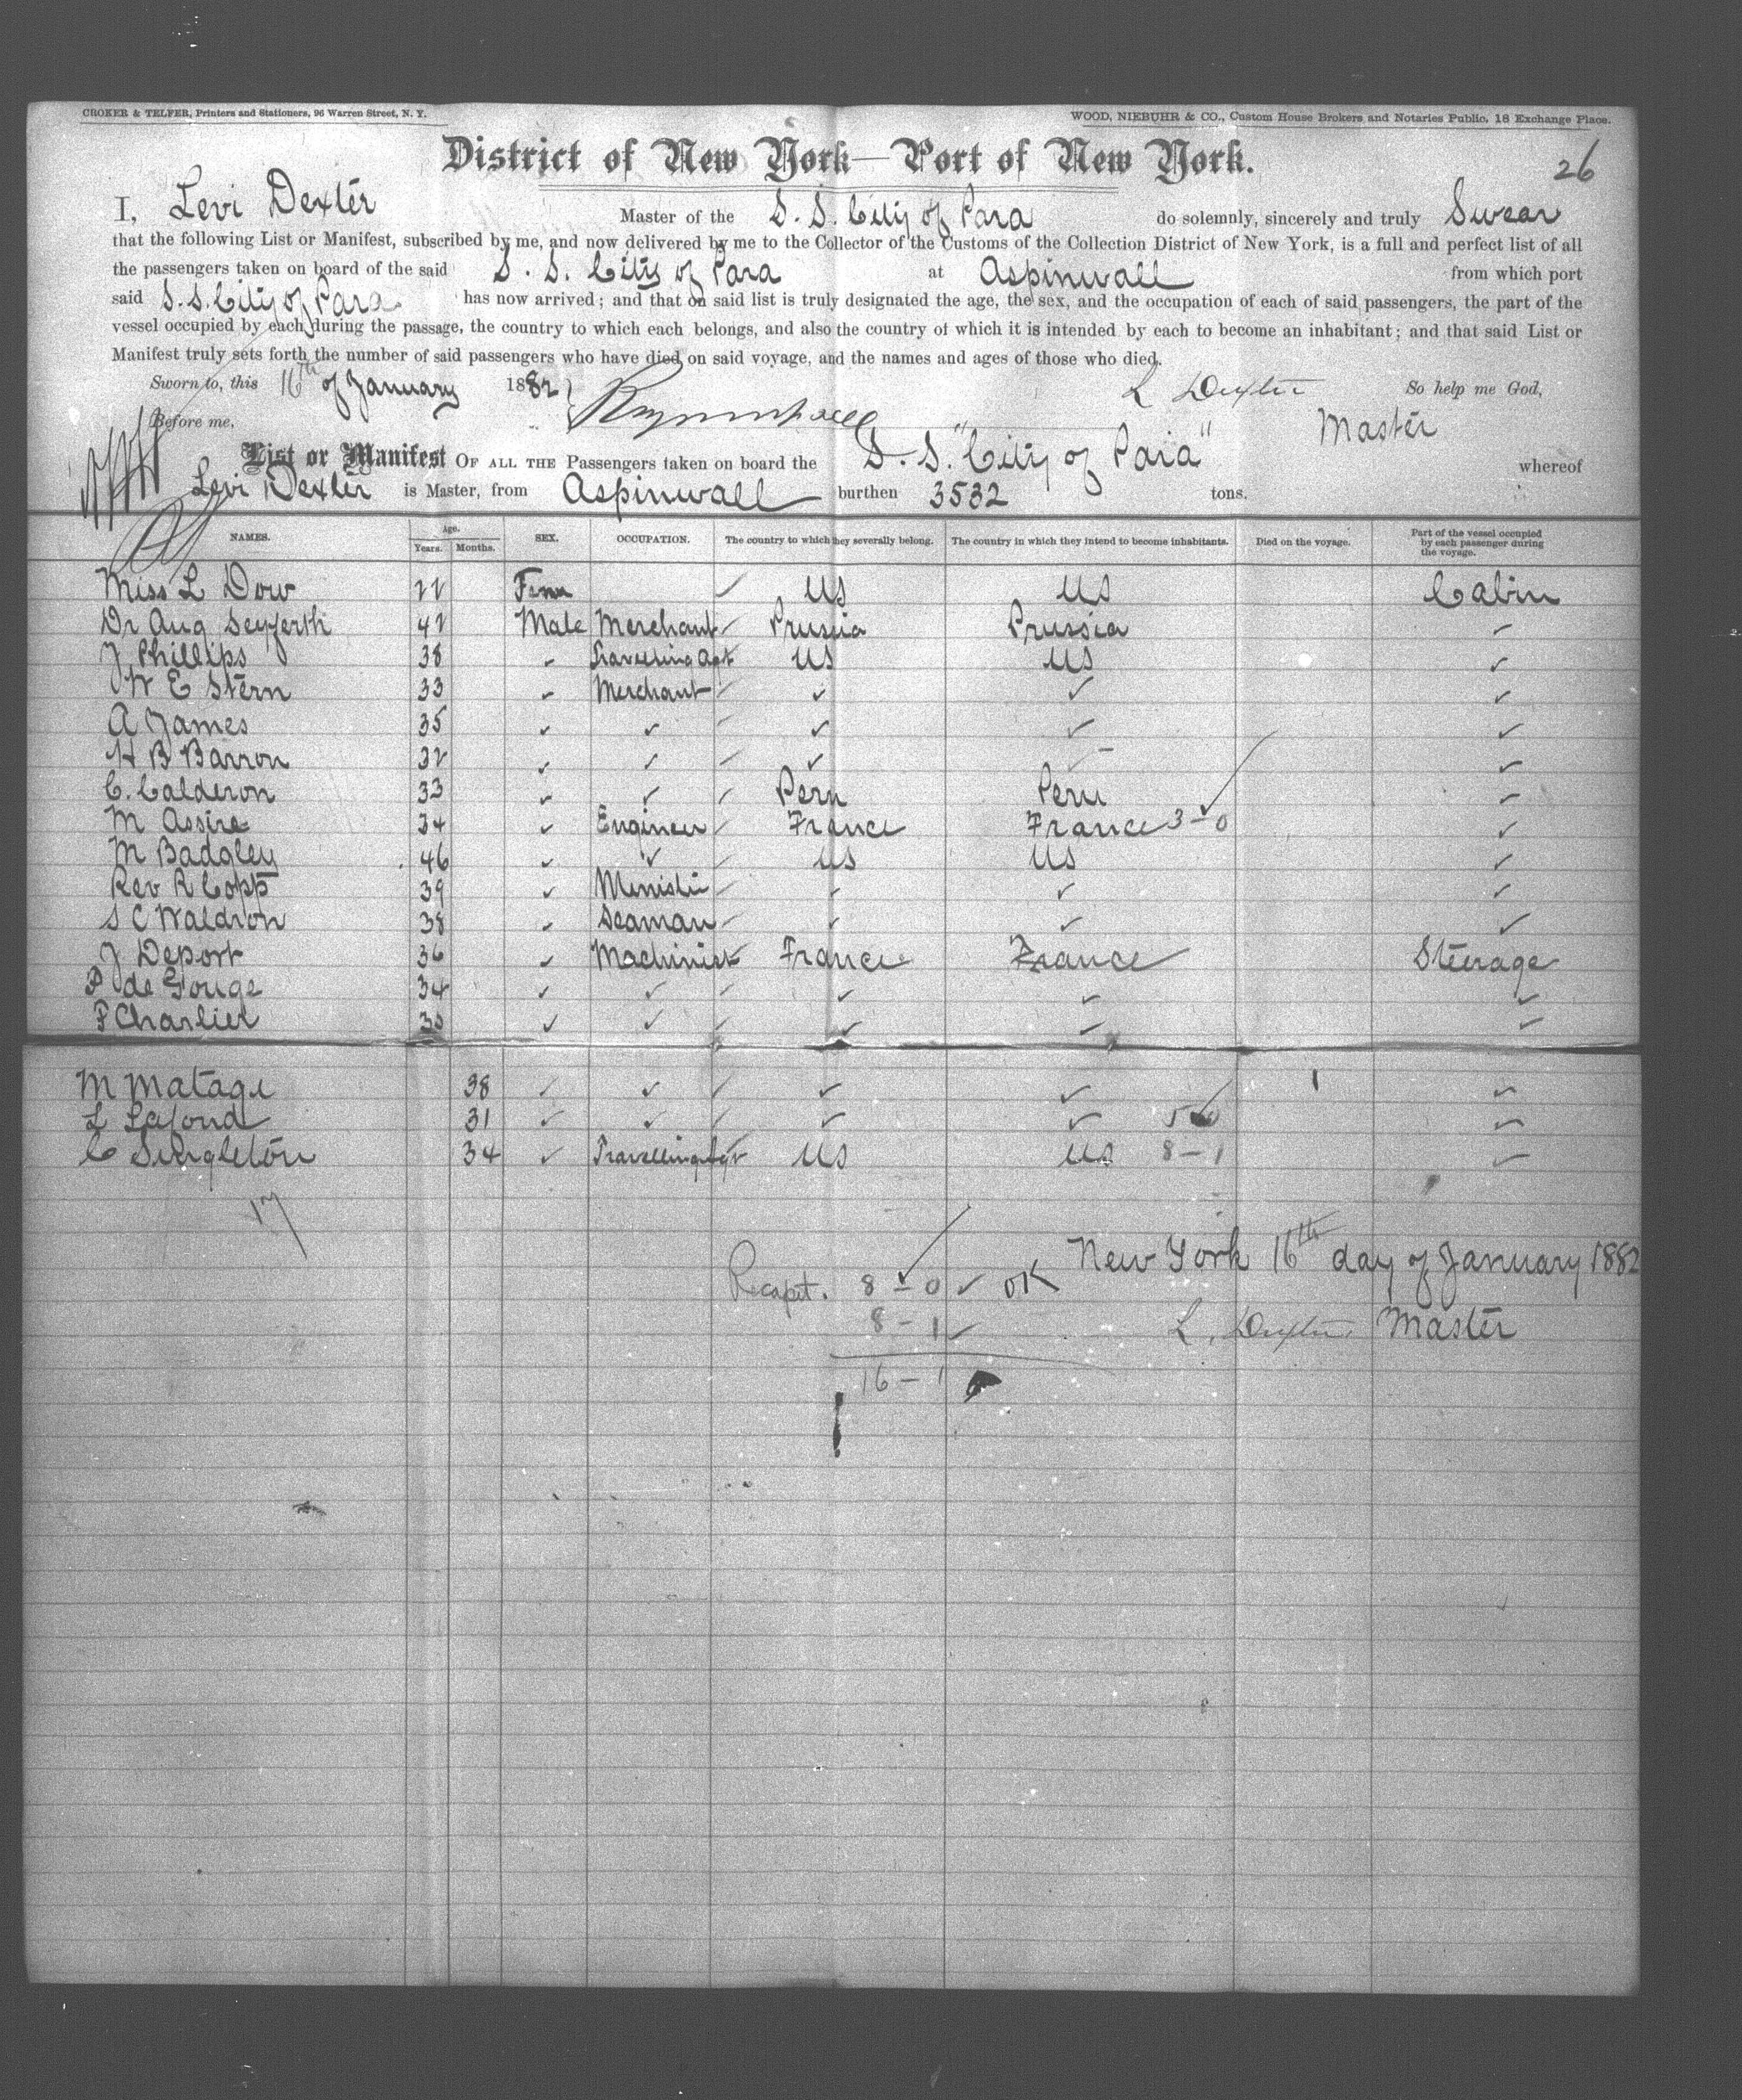 CROKER & TELFER, Printers and Stationers, 96 Warren Street, N. Y.
WOOD, NIEBUHR & CO., Custom House Brokers and Notaries Public, 18 Exchange Place.
District of New York—Port of New York.
26
I, Levi Dexter Master of the S. S. City of Para do solemnly, sincerely and truly Swear
that the following List or Manifest, subscribed by me, and now delivered by me to the Collector of the Customs of the Collection District of New York, is a full and perfect list of all
the passengers taken on board of the said S. S. City of Para at Aspinwall from which port
said S. S. City of Para has now arrived; and that on said list is truly designated the age, the sex, and the occupation of each of said passengers, the part of the
vessel occupied by each during the passage, the country to which each belongs, and also the country of which it is intended by each to become an inhabitant; and that said List or
Manifest truly sets forth the number of said passengers who have died on said voyage, and the names and ages of those who died.
Sworn to, this 16th of January 1882 L Dexter So help me God,
Before me, Master
List or Manifest OF ALL THE Passengers taken on board the S. S. "City of Para" whereof
Levi Dexter is Master, from Aspinwall burthen 3532 tons.
NAMES. Age. Years. Months. SEX. OCCUPATION. The country to which they severally belong. The country in which they intend to become inhabitants. Died on the voyage. Part of the vessel occupied by each passenger during the voyage.
Miss L Dow 22 Fem ✓ US US Cabin
Dr Aug Seyferth 42 Male Merchant ✓ Prussia Prussia ✓
J Phillips 38 ✓ Travelling Agt ✓ US US ✓
W E Stern 33 ✓ Merchant ✓ ✓ ✓ ✓
A James 35 ✓ ✓ ✓ ✓ ✓ ✓
H B Barron 32 ✓ ✓ ✓ ✓ – ✓
C. Calderon 33 ✓ ✓ ✓ Peru Peru ✓
M Assire 34 ✓ Engineer ✓ France France 3–0 ✓
M Badgley 46 ✓ ✓ ✓ US US ✓
Rev R Copp 39 ✓ Ministir ✓ ✓ ✓ ✓
S C Waldron 38 ✓ Seaman ✓ ✓ ✓ ✓
J Deport 36 ✓ Machinist ✓ France France Steerage
P de Gouge 34 ✓ ✓ ✓ ✓ ✓ ✓
F Charliet ✓ ✓ ✓ ✓ ✓ ✓
M Matage 38 ✓ ✓ ✓ ✓ ✓ 1 ✓
L Lafond 31 ✓ ✓ ✓ ✓ ✓ 5–0 ✓
C Singleton 34 ✓ Travelling Agt ✓ US US 8–1 ✓
17
New York 16th day of January 1882
Recapt. 8–0 ✓ OK
8–1 ✓ L. Dexter Master
16–1